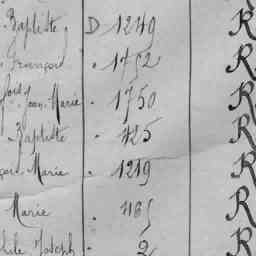 Baptiste D 1249 R
François . 1752 R
Jean Marie . 1750 R
Baptiste . 425 R
Marie . 1219 R
Marie . 1165 R
Joseph . 2 R